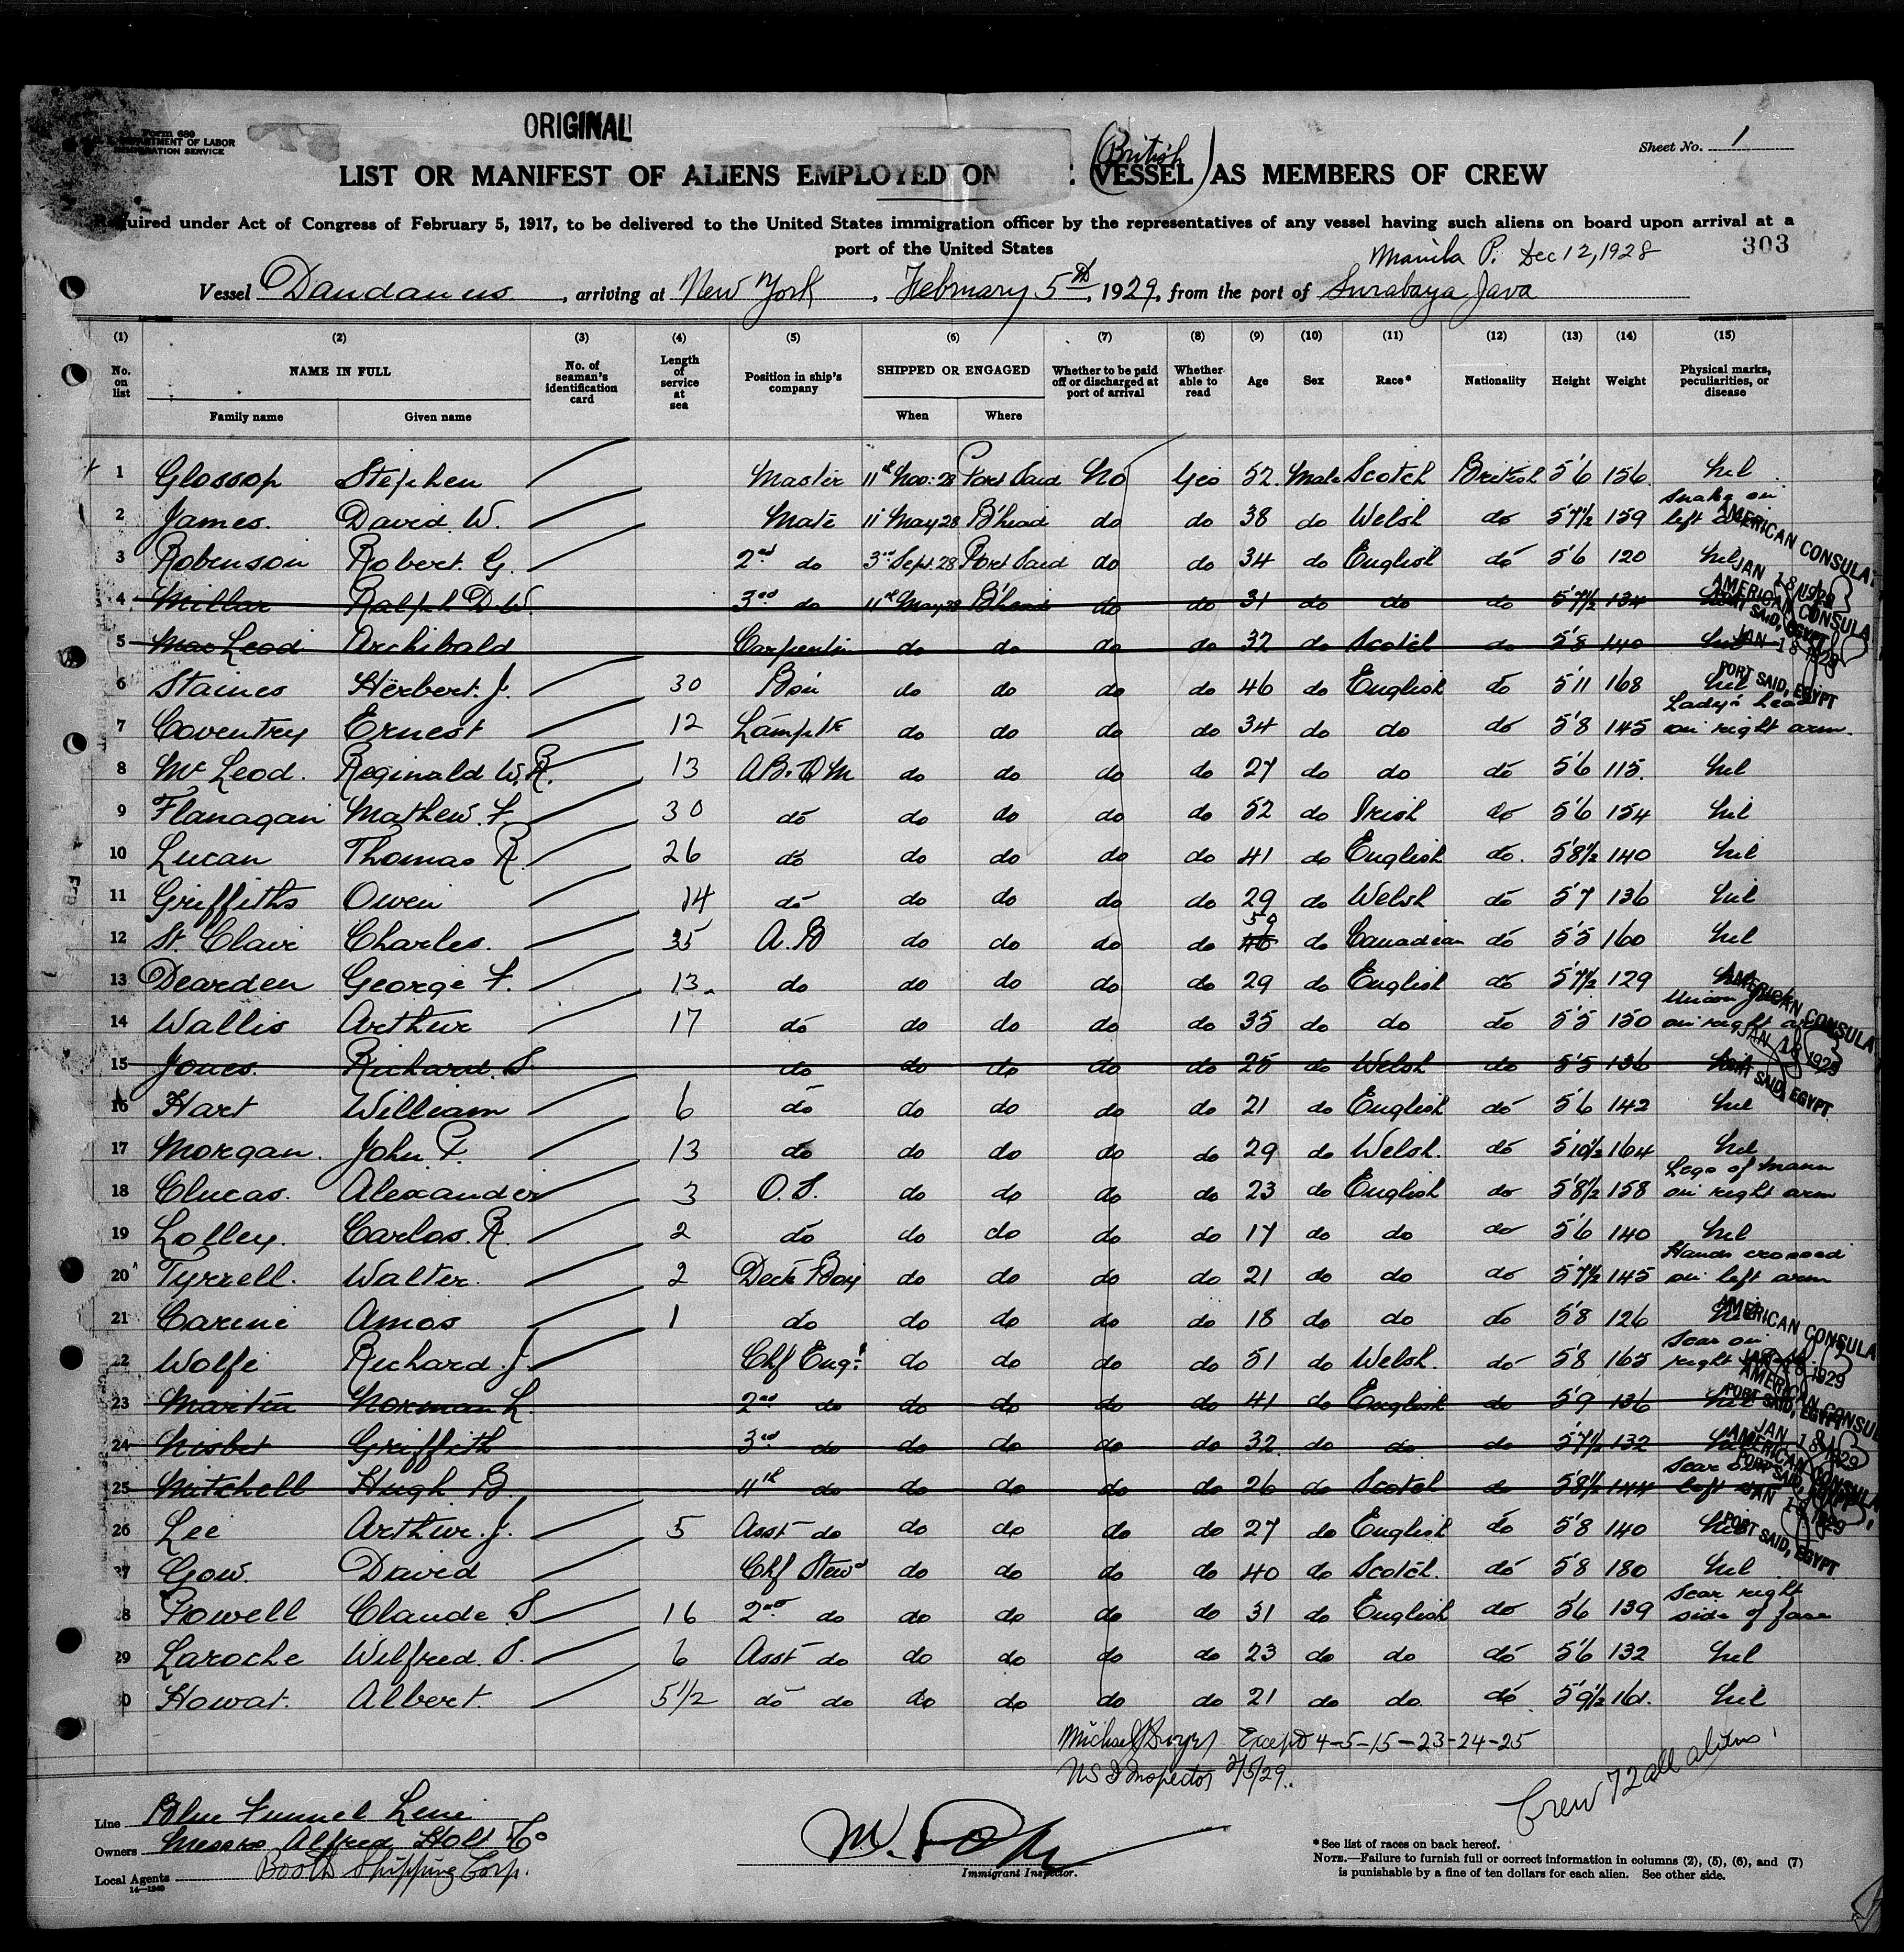 Form 680
DEPARTMENT OF LABOR
IMMIGRATION SERVICE
ORIGINAL
Sheet No. 1
(British)
LIST OR MANIFEST OF ALIENS EMPLOYED ON VESSEL AS MEMBERS OF CREW
Required under Act of Congress of February 5, 1917, to be delivered to the United States immigration officer by the representatives of any vessel having such aliens on board upon arrival at a
port of the United States
303
Manila P. Dec 12, 1928
Vessel Dardanus, arriving at New York, February 5th, 1929, from the port of Surabaya, Java
(1) (2) (3) (4) (5) (6) (7) (8) (9) (10) (11) (12) (13) (14) (15)
No. on list NAME IN FULL No. of seaman's identification card Length of service at sea Position in ship's company SHIPPED OR ENGAGED Whether to be paid off or discharged at port of arrival Whether able to read Age Sex Race* Nationality Height Weight Physical marks, peculiarities, or disease
Family name Given name When Where
1 Glossop Stephen Master 11th Nov: 28 Port Said No Yes 52 Male Scotch British 5'6 156 Nil
2 James. David W. Mate 11 May 28 B'head do do 38 do Welsh do 5'7½ 159 Snake on left arm
3 Robinson Robert G. 2nd do 3rd Sept. 28 Port Said do do 34 do English do 5'6 120 Nil
4 Millar Ralph D.W. 3rd do 11th May 28 B'head do do 31 do do do 5'7½ 134
5 MacLeod Archibald Carpenter do do do do 32 do Scotch do 5'8 140 Nil
6 Staines Herbert J. 30 Bosn do do do do 46 do English do 5'11 168 Nil
7 Coventry Ernest 12 Lamptr do do do do 34 do do do 5'8 145 Lady's head on right arm.
8 McLeod. Reginald W.R. 13 AB. QM do do do do 27 do do do 5'6 115. Nil
9 Flanagan Mathew. F. 30 do do do do do 52 do Irish do 5'6 154 Nil
10 Lucan Thomas R. 26 do do do do do 41 do English do. 5'8½ 140 Nil
11 Griffiths Owen 14 do do do do do 29 do Welsh do 5'7 136 Nil
12 St. Clair Charles. 35 A.B do do do do 59 46 do Canadian do 5'5 160 Nil
13 Dearden George F. 13. do do do do do 29 do English do 5'7½ 129 Nil
14 Wallis Arthur 17 do do do do do 35 do do do 5'5 150 Union Jack on right arm
15 Jones. Richard. S. do do do do do 25 do Welsh do 5'5 136 Nil
16 Hart William 6 do do do do do 21 do English do 5'6 142 Nil
17 Morgan. John. P. 13 do do do do do 29 do Welsh. do 5'10½ 164 Nil
18 Clucas. Alexander 3 O.S. do do do do 23 do English do 5'8½ 158 Legs of mann on right arm
19 Lolley. Carlos. R. 2 do do do do do 17 do do do 5'6 140 Nil
20 Tyrrell. Walter. 2 Deck Boy do do do do 21 do do do 5'7½ 145 Hands crossed on left arm
21 Carine Amos 1 do do do do do 18 do do do 5'8 126 Nil
22 Wolfe Richard. J. Chf Engr. do do do do 51 do Welsh. do 5'8 165 Scar on right
23 Martin Norman L. 2nd do do do do do 41 do English do 5'9 136 Nil
24 Nisbet Griffith 3rd do do do do do 32 do do do 5'7½ 132
25 Mitchell Hugh B. 4th do do do do do 26 do Scotch do 5'8½ 144 Scar on left
26 Lee Arthur. J. 5 Asst do do do do do 27 do English do 5'8 140 Nil
27 Gow. David Chf Stewd do do do do 40 do Scotch. do 5'8 180 Nil
28 Powell Claude S. 16 2nd do do do do do 31 do English do 5'6 139 Scar right side of face
29 Laroche Wilfred. S. 6 Asst do do do do do 23 do do do 5'6 132 Nil
30 Howat. Albert. 5½ do do do do do do 21 do do. do 5'9½ 161. Nil
AMERICAN CONSULA
JAN 18 1929
PORT SAID, EGYPT
AMERICAN CONSULA
JAN 18 1929
PORT SAID, EGYPT
AMERICAN CONSULA
JAN 18 1929
PORT SAID, EGYPT
AMERICAN CONSULA
JAN 18 1929
PORT SAID, EGYPT
AMERICAN CONSUL
JAN 18 1929
PORT SAID, EGYPT
AMERICAN CONSULA
JAN 18 1929
PORT SAID, EGYPT
Michael Except 4-5-15-23-24-25
US I Inspector 2/5/29.
Crew 72 all aliens
Line Blue Funnel Line
Owners Messrs Alfred Holt & Co
Local Agents Booth Shipping Corp.
14—1240
Immigrant Inspector.
*See list of races on back hereof.
NOTE.—Failure to furnish full or correct information in columns (2), (5), (6), and (7)
is punishable by a fine of ten dollars for each alien. See other side.